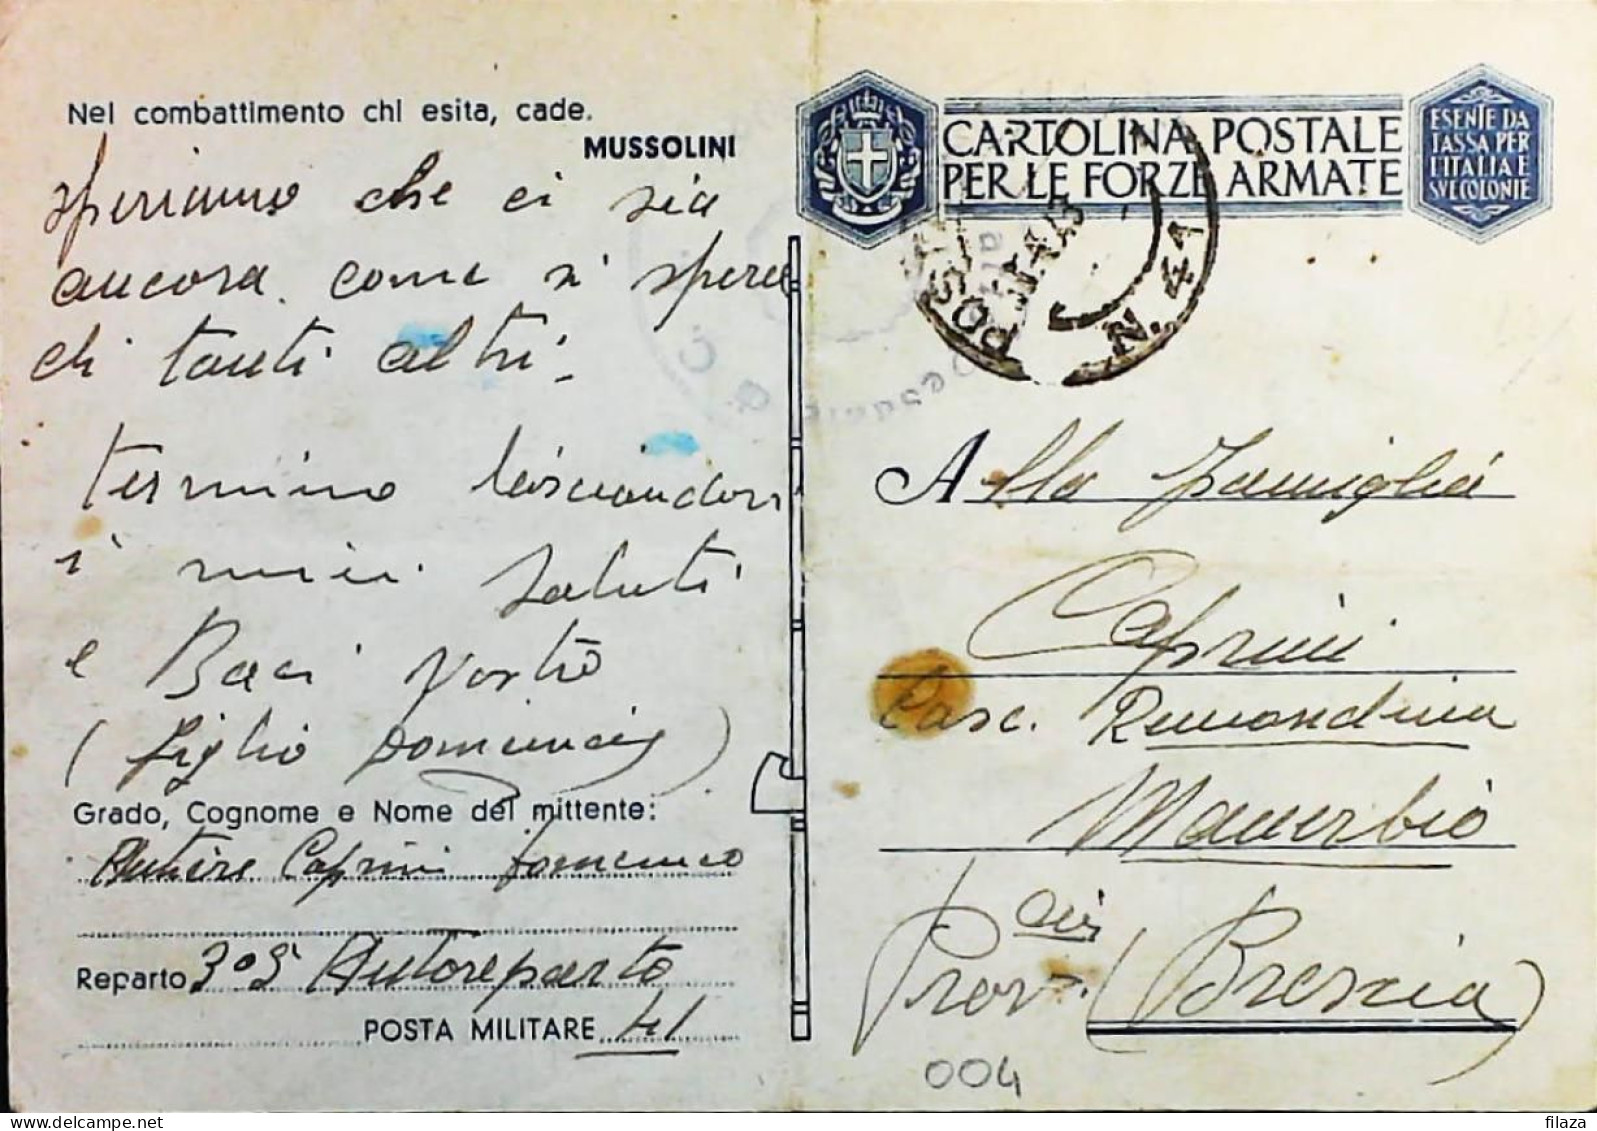 Nel combattimento chi esita, cade.
MUSSOLINI
speriamo che ci sia
ancora come si spera
di tanti altri.
termino lasciandovi
i miei saluti
e Baci vostro
(figlio Domenico)
Grado, Cognome e Nome del mittente:
Autiere Caprini Domenico
Reparto 305 Autoreparto
POSTA MILITARE 41
CARTOLINA POSTALE
PER LE FORZE ARMATE
ESENTE DA
TASSA PER
L'ITALIA E
SUE COLONIE
N. 41
Alla Famiglia
Caprini
Casc. Remondina
Manerbio
Prov. di (Brescia)
004
filaza